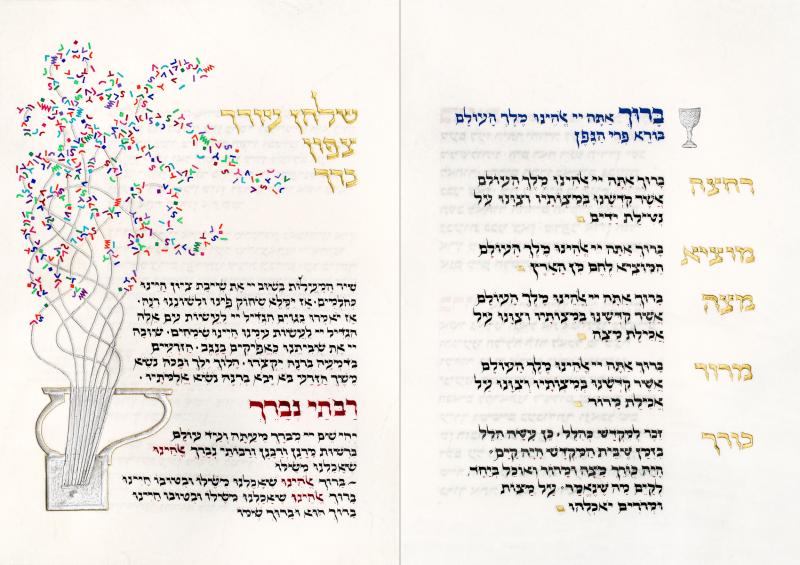 ברוך אתה יי אלהינו מלך העולם
בורא פרי הגפן
רחצה
ברוך אתה יי אלהינו מלך העולם
אשר קדשנו במצותיו וצונו על
נטילת ידים
מוציא
ברוך אתה יי אלהינו מלך העולם
המוציא לחם מן הארץ
מצה
ברוך אתה יי אלהינו מלך העולם
אשר קדשנו במצותיו וצונו על
אכילת מצה
מרור
ברוך אתה יי אלהינו מלך העולם
אשר קדשנו במצותיו וצונו על
אכילת מרור
כורך
זכר למקדש כהלל. כן עשה הלל
בזמן שבית המקדש היה קים
היה כורך מצה ומרור ואוכל ביחד
לקים מה שנאמר על מצות
ומררים יאכלהו
שלחן עורך
צפון
ברך
שיר המעלות בשוב יי את שיבת ציון היינו
כחלמים. אז ימלא שחוק פינו ולשוננו רנה.
אז יאמרו בגוים הגדיל יי לעשות עם אלה
הגדיל יי לעשות עמנו היינו שמחים. שובה
יי את שביתנו כאפיקים בנגב. הזרעים
בדמעה ברנה יקצרו. הלוך ילך ובכה נשא
משך הזרע בא יבא ברנה נשא אלמתיו.
רבתי נברך
יהי שם יי מברך מעתה ועד עולם
ברשות מרנן ורבנן ורבותי נברך אלהינו
שאכלנו משלו
ברוך אלהינו שאכלנו משלו ובטובו חיינו
ברוך אלהינו שאכלנו משלו ובטובו חיינו
ברוך הוא וברוך שמו